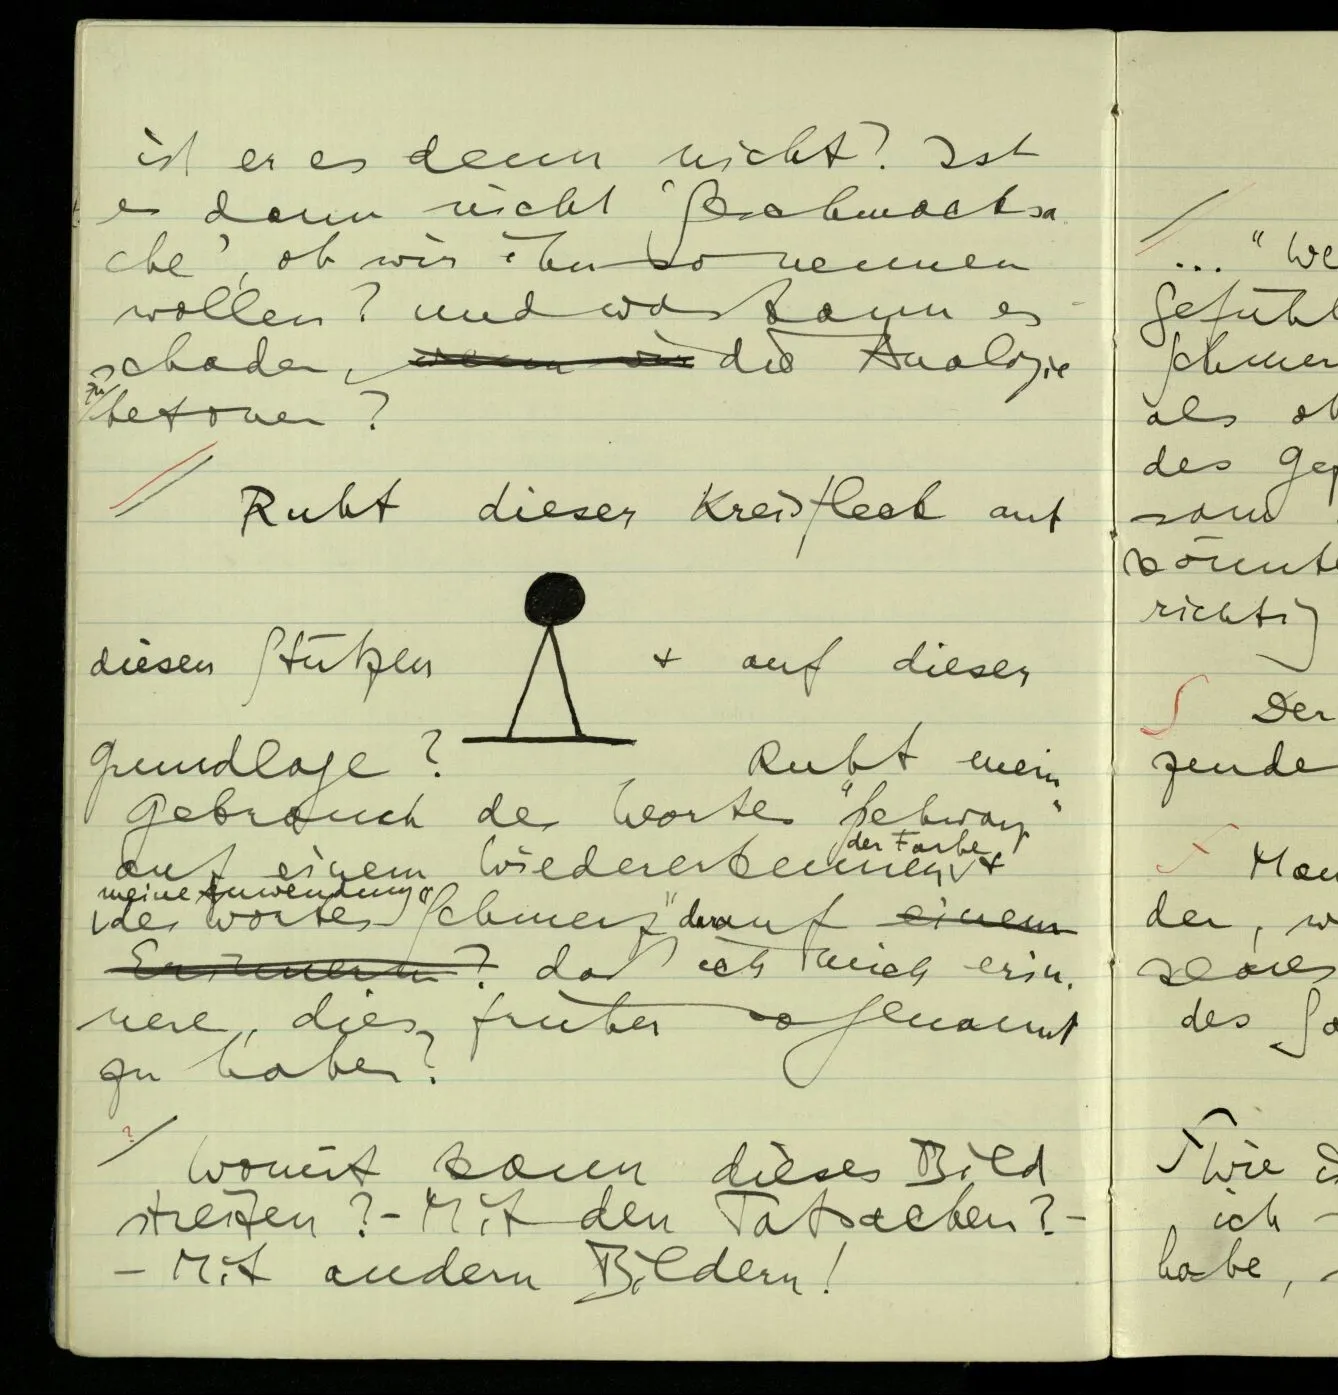 ist er es denn nicht? Ist
es dann nicht 'Geschmacksa
che', ob wir ihn so nennen
wollen? und was kann es
schaden, wenn wir die Analogie
zu betonen?
Ruht dieser Kreisfleck auf
diesen Stützen + auf dieser
Grundlage?
Ruht mein
Gebrauch des Wortes "schwarz"
auf einem Wiedererkennen der Farbe +
meine Anwendung
des Wortes "Schmerz" darauf einem
Erinnern? daß ich mich erin-
nere, dies früher so genannt
zu haben?
?
Womit kann dieses Bild
streiten? – Mit den Tatsachen? –
– Mit andern Bildern!
... "We
Gefühl
Schmer
als ob
des Gep
könnte
richtig
Der
zende
Man
der, w
des
Wie
ich –
habe,